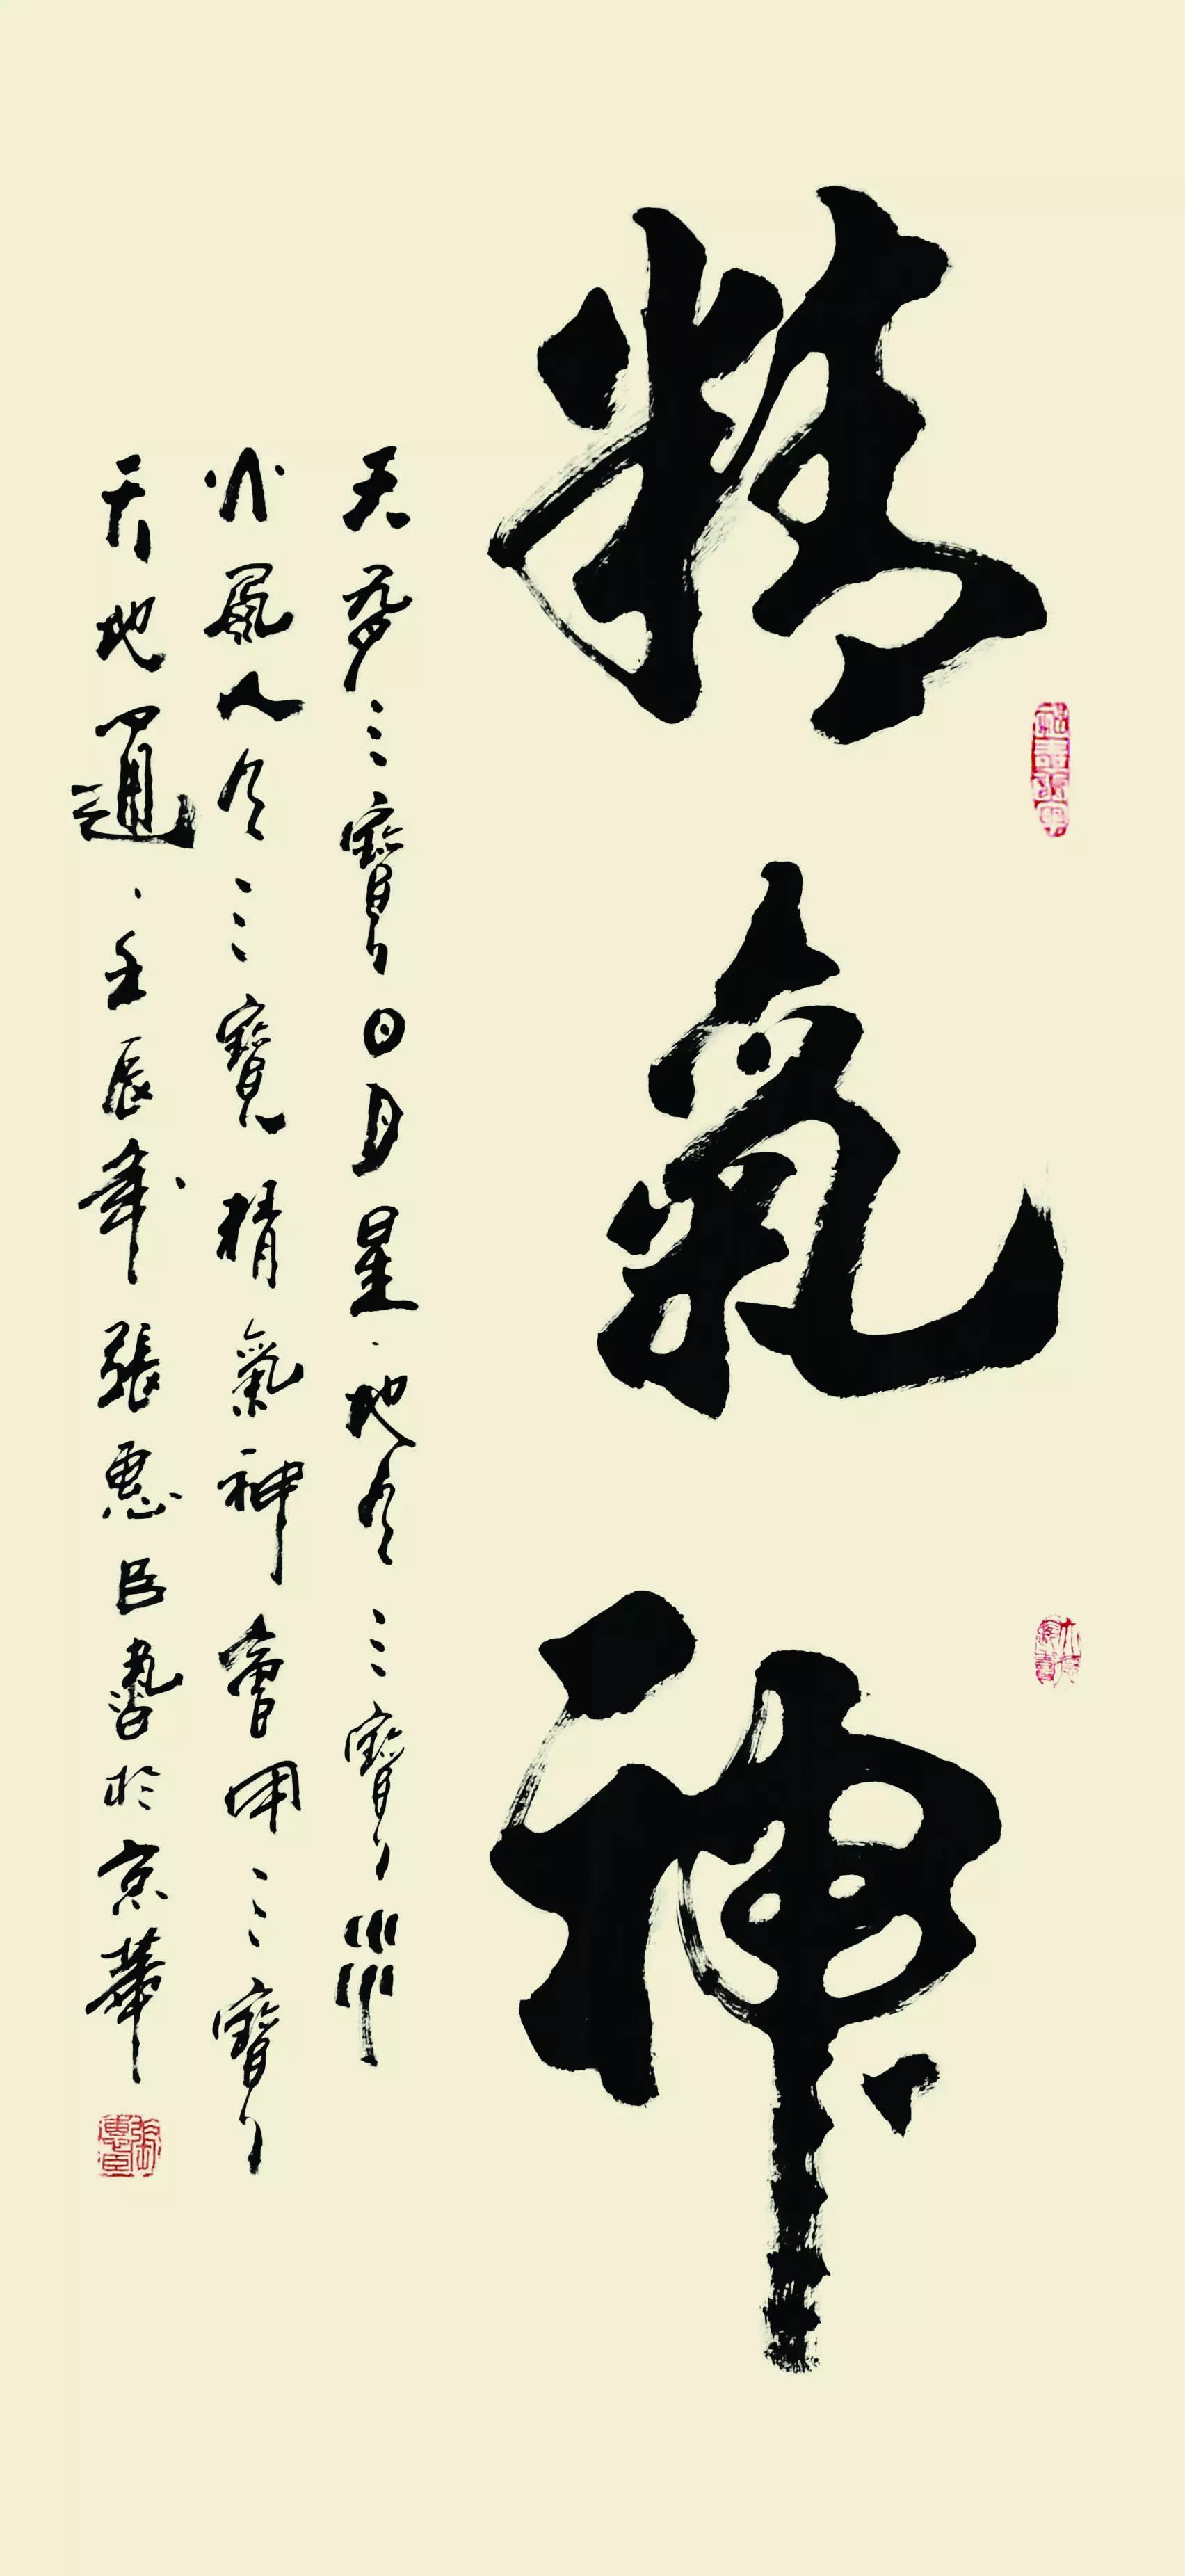 精氣神
天有三寶日月星地有三寶水
火風人有三寶精氣神會用三寶
天地通壬辰年張惠臣於京華
張惠臣